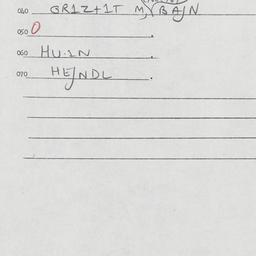 040 GR1Z+1T M)(BAJN
050 0
060 HU.1N
070 HEJNDL